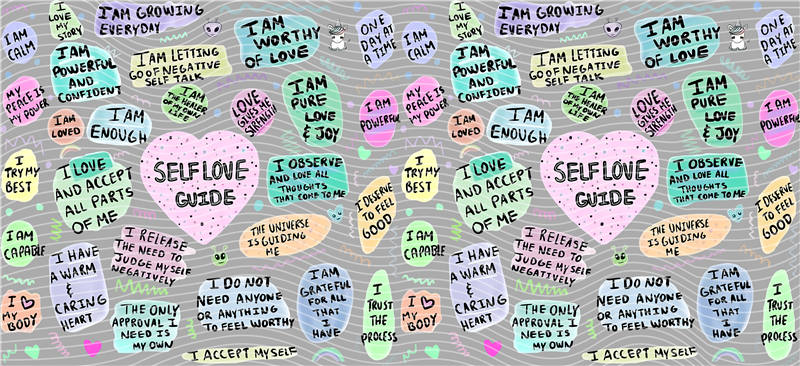 I
LOVE
MY STORY
I AM GROWING
EVERYDAY
I AM
WORTHY
OF LOVE
ONE
DAY AT
A TIME
I AM
CALM
I AM
POWERFUL
AND
CONFIDENT
I AM LETTING
GO OF NEGATIVE
SELF TALK
MY
PEACE IS
MY POWER
I AM
THE HEALER
OF MY OWN
LIFE
LOVE
GIVES ME
STRENGTH
I AM
PURE
LOVE
& JOY
I AM
POWERFUL
I AM
LOVED
I AM
ENOUGH
I
TRY MY
BEST
I LOVE
AND ACCEPT
ALL PARTS
OF ME
SELF LOVE
GUIDE
I OBSERVE
AND LOVE ALL
THOUGHTS
THAT COME TO ME
I DESERVE
TO FEEL
GOOD
I AM
CAPABLE
I HAVE
A WARM
&
CARING
HEART
I RELEASE
THE NEED TO
JUDGE MYSELF
NEGATIVELY
THE UNIVERSE
IS GUIDING
ME
I
MY
BODY
THE ONLY
APPROVAL I
NEED IS
MY OWN
I DO NOT
NEED ANYONE
OR ANYTHING
TO FEEL WORTHY
I AM
GRATEFUL
FOR ALL
THAT
I HAVE
I
TRUST
THE
PROCESS
I ACCEPT MYSELF
I
LOVE
MY STORY
I AM GROWING
EVERYDAY
I AM
WORTHY
OF LOVE
ONE
DAY AT
A TIME
I AM
CALM
I AM
POWERFUL
AND
CONFIDENT
I AM LETTING
GO OF NEGATIVE
SELF TALK
MY
PEACE IS
MY POWER
I AM
THE HEALER
OF MY OWN
LIFE
LOVE
GIVES ME
STRENGTH
I AM
PURE
LOVE
& JOY
I AM
POWERFUL
I AM
LOVED
I AM
ENOUGH
I
TRY MY
BEST
I LOVE
AND ACCEPT
ALL PARTS
OF ME
SELF LOVE
GUIDE
I OBSERVE
AND LOVE ALL
THOUGHTS
THAT COME TO ME
I DESERVE
TO FEEL
GOOD
I AM
CAPABLE
I HAVE
A WARM
&
CARING
HEART
I RELEASE
THE NEED TO
JUDGE MYSELF
NEGATIVELY
THE UNIVERSE
IS GUIDING
ME
I
MY
BODY
THE ONLY
APPROVAL I
NEED IS
MY OWN
I DO NOT
NEED ANYONE
OR ANYTHING
TO FEEL WORTHY
I AM
GRATEFUL
FOR ALL
THAT
I HAVE
I
TRUST
THE
PROCESS
I ACCEPT MYSELF